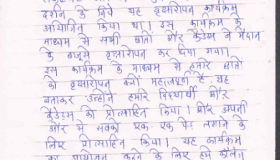 दर्शन के लिये यह वृक्षारोपण कार्यक्रम
आयोजित किया था। इस कार्यक्रम के
माध्यम से सभी छात्रो और कैडेटस ने मैदान
के बाजूमे वृक्षारोपण कर दिया गया।
इस कार्यक्रम के माध्यम से हमारे छात्रो
को वृक्षारोपण क्यों महत्वपूर्ण है यह
बताकर उन्होंने हमारे विद्यार्थी और
कैडेटस को प्रोत्साहित किया। और अपनी
और से सबको एक एक पेड़ लगाने के
लिए प्रोत्साहित किया। यह कार्यक्रम
का आयोजन करने के लिए